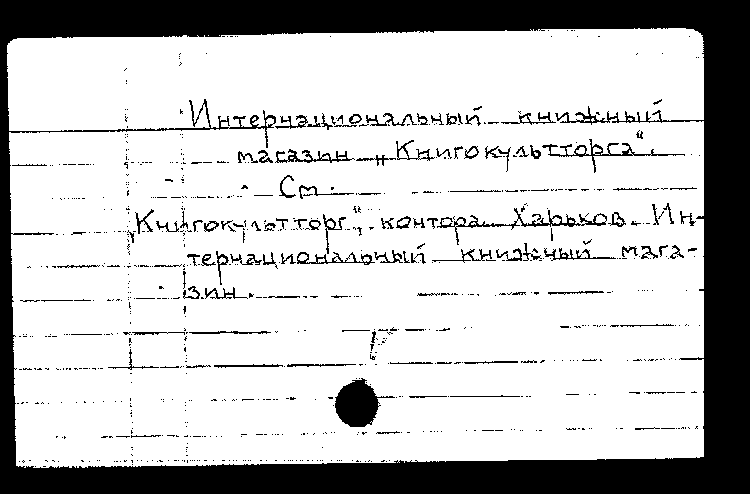 Интернациональный книжный
магазин „Книгокультторга“.
См.
„Книгокультторг“, контора. Харьков. Ин-
тернациональный книжный мага-
зин.